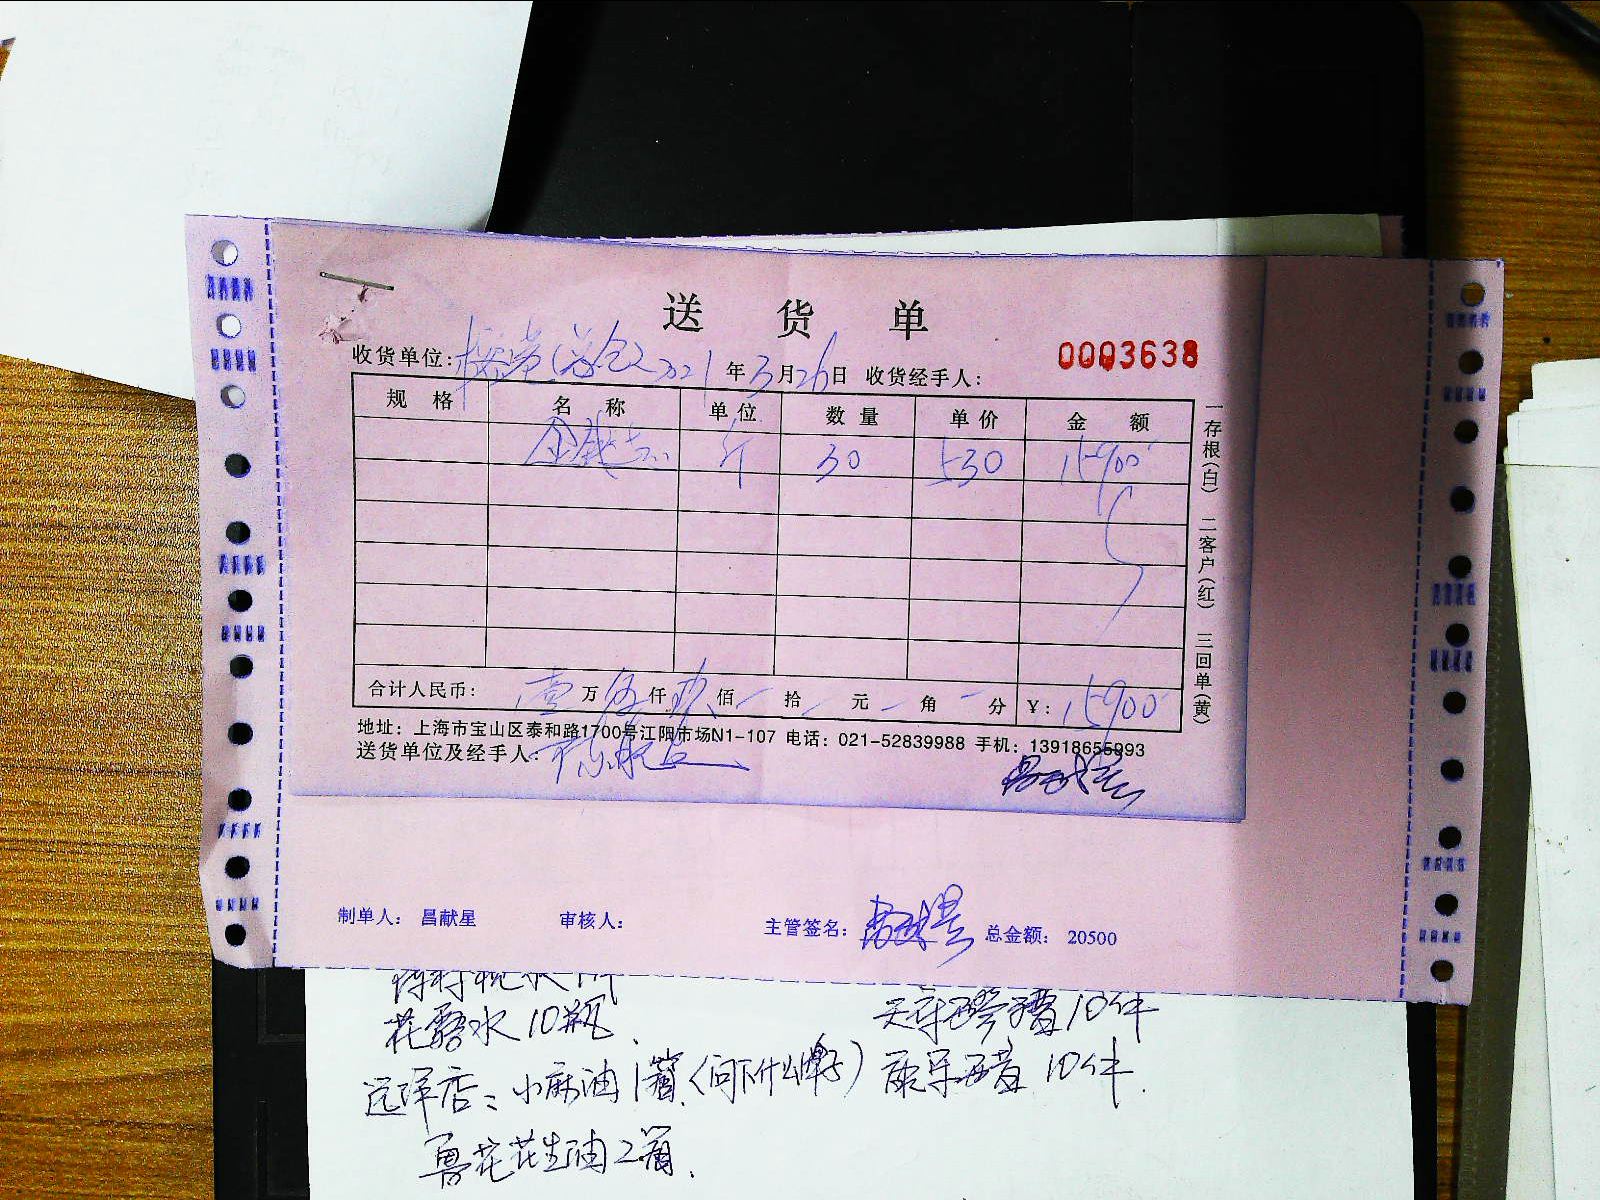 送 货 单
0003638
收货单位: 2021 年 3 月 26 日 收货经手人:
规 格 名 称 单位 数量 单价 金 额
斤 30 530 15900
合计人民币: 壹 万 伍 仟 玖 佰 拾 元 角 分 ¥: 15900
地址: 上海市宝山区泰和路1700号江阳市场N1-107 电话: 021-52839988 手机: 13918655993
送货单位及经手人:
昌献星
一存根(白) 二客户(红) 三回单(黄)
制单人: 昌献星 审核人: 主管签名: 昌献星 总金额: 20500
花露水 10瓶
10件
远洋店: 小麻油 1箱 (问下什么牌子) 10件
鲁花花生油 2箱